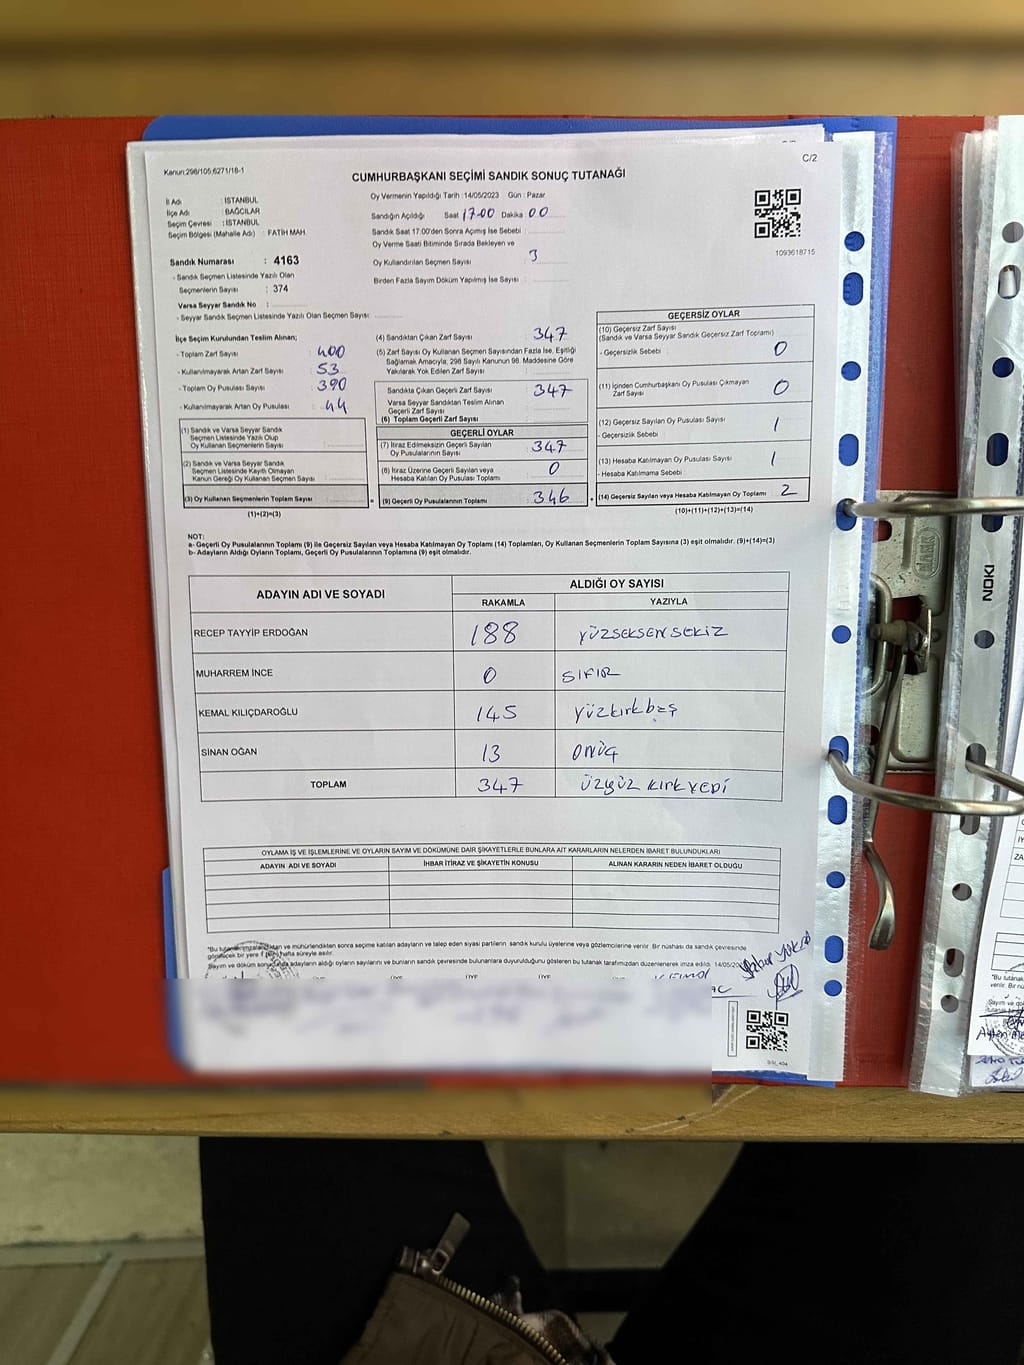 C/2
Kanun:298/105,6271/18-1
CUMHURBAŞKANI SEÇİMİ SANDIK SONUÇ TUTANAĞI
İl Adı : İSTANBUL
İlçe Adı : BAĞCILAR
Seçim Çevresi : İSTANBUL
Seçim Bölgesi (Mahalle Adı) : FATİH MAH.
Sandık Numarası : 4163
- Sandık Seçmen Listesinde Yazılı Olan
Seçmenlerin Sayısı : 374
Varsa Seyyar Sandık No :
- Seyyar Sandık Seçmen Listesinde Yazılı Olan Seçmen Sayısı:
Oy Vermenin Yapıldığı Tarih : 14/05/2023 Gün : Pazar
Sandığın Açıldığı Saat 17.00 Dakika 00
Sandık Saat 17.00'den Sonra Açımış İse Sebebi :
Oy Verme Saati Bitiminde Sırada Bekleyen ve
Oy Kullandırılan Seçmen Sayısı 3
Birden Fazla Sayım Döküm Yapılmış İse Sayısı :
1093618715
İlçe Seçim Kurulundan Teslim Alınan;
- Toplam Zarf Sayısı : 400
- Kullanılmayarak Artan Zarf Sayısı : 53
- Toplam Oy Pusulası Sayısı : 390
- Kullanılmayarak Artan Oy Pusulası : 44
(1) Sandık ve Varsa Seyyar Sandık
Seçmen Listesinde Yazılı Olup
Oy Kullanan Seçmenlerin Sayısı :
(2) Sandık ve Varsa Seyyar Sandık
Seçmen Listesinde Kayıtlı Olmayan
Kanun Gereği Oy Kullanan Seçmen Sayısı :
(3) Oy Kullanan Seçmenlerin Toplam Sayısı :
(1)+(2)=(3)
(4) Sandıktan Çıkan Zarf Sayısı : 347
(5) Zarf Sayısı Oy Kullanan Seçmen Sayısından Fazla İse, Eşitliği
Sağlamak Amacıyla; 298 Sayılı Kanunun 98. Maddesine Göre
Yakılarak Yok Edilen Zarf Sayısı :
Sandıkta Çıkan Geçerli Zarf Sayısı : 347
Varsa Seyyar Sandıktan Teslim Alınan
Geçerli Zarf Sayısı :
(6) Toplam Geçerli Zarf Sayısı :
GEÇERLİ OYLAR
(7) İtiraz Edilmeksizin Geçerli Sayılan
Oy Pusulalarının Sayısı : 347
(8) İtiraz Üzerine Geçerli Sayılan veya
Hesaba Katılan Oy Pusulası Toplamı : 0
(9) Geçerli Oy Pusulalarının Toplamı : 346
GEÇERSİZ OYLAR
(10) Geçersiz Zarf Sayısı
(Sandık ve Varsa Seyyar Sandık Geçersiz Zarf Toplamı)
- Geçersizlik Sebebi : 0
(11) İçinden Cumhurbaşkanı Oy Pusulası Çıkmayan
Zarf Sayısı : 0
(12) Geçersiz Sayılan Oy Pusulası Sayısı : 1
- Geçersizlik Sebebi :
(13) Hesaba Katılmayan Oy Pusulası Sayısı : 1
- Hesaba Katılmama Sebebi :
(14) Geçersiz Sayılan veya Hesaba Katılmayan Oy Toplamı : 2
(10)+(11)+(12)+(13)=(14)
NOT:
a- Geçerli Oy Pusulalarının Toplamı (9) ile Geçersiz Sayılan veya Hesaba Katılmayan Oy Toplamı (14) Toplamları, Oy Kullanan Seçmenlerin Toplam Sayısına (3) eşit olmalıdır. (9)+(14)=(3)
b- Adayların Aldığı Oyların Toplamı, Geçerli Oy Pusulalarının Toplamına (9) eşit olmalıdır.
ADAYIN ADI VE SOYADI ALDIĞI OY SAYISI
RAKAMLA YAZIYLA
RECEP TAYYİP ERDOĞAN 188 YÜZSEKSENSEKİZ
MUHARREM İNCE 0 SIFIR
KEMAL KILIÇDAROĞLU 145 Yüzkırkbeş
SİNAN OĞAN 13 ONÜÇ
TOPLAM 347 ÜZYÜZ KIRKYEDİ
OYLAMA İŞ VE İŞLEMLERİNE VE OYLARIN SAYIM VE DÖKÜMÜNE DAİR ŞİKAYETLERLE BUNLARA AİT KARARLARIN NELERDEN İBARET BULUNDUKLARI
ADAYIN ADI VE SOYADI İHBAR İTİRAZ VE ŞİKAYETİN KONUSU ALINAN KARARIN NEDEN İBARET OLDUĞU
*Bu tutanak imzalandıktan ve mühürlendikten sonra seçime katılan adayların ve talep eden siyasi partilerin sandık kurulu üyelerine veya gözlemcilerine verilir. Bir nüshası da sandık çevresinde
görülecek bir yere 1 (bir) hafta süreyle asılır.
Sayım ve döküm sonucunda adayların aldığı oyların sayılarını ve bunların sandık çevresinde bulunanlara duyurulduğunu gösteren bu tutanak tarafımızdan düzenlenerek imza edildi. 14/05/20
ÜYE ÜYE ÜYE
NOKI